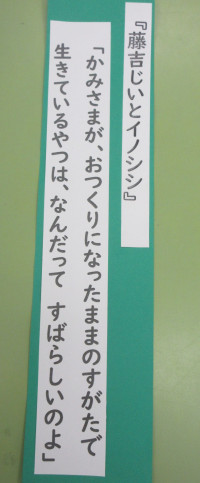 『藤吉じいとイノシシ』
「かみさまが、おつくりになったままのすがたで
生きているやつは、なんだって すばらしいのよ」